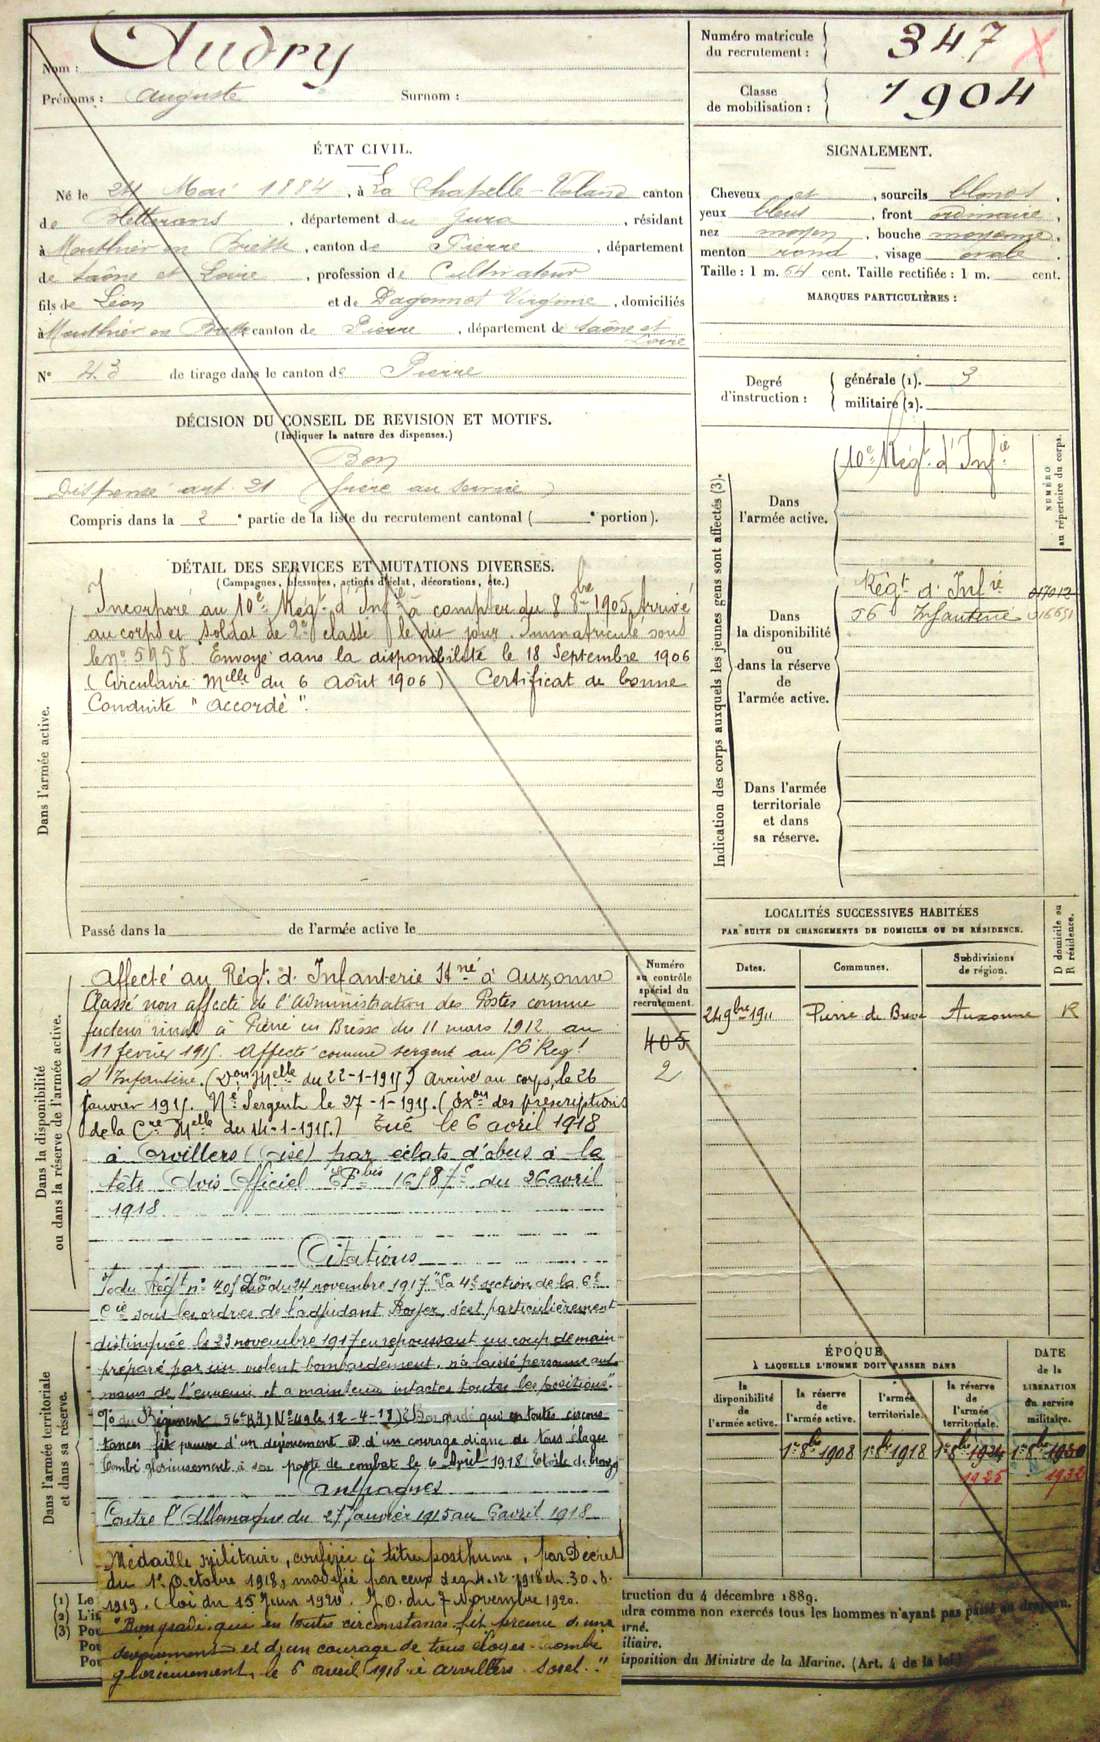 Nom : Audry
Prénoms : Auguste Surnom :
Numéro matricule du recrutement : 347 X
Classe de mobilisation : 1904
ÉTAT CIVIL.
Né le 24 Mai 1884, à La Chapelle-Voland canton
de Bletterans, département du Jura, résidant
à Mouthier en Bresse, canton de Pierre, département
de Saône et Loire, profession de Cultivateur
fils de Léon et de Dagonnot Virginie, domiciliés
à Mouthier en Bresse canton de Pierre, département de Saône et
Loire
N° 43 de tirage dans le canton de Pierre
DÉCISION DU CONSEIL DE REVISION ET MOTIFS.
(Indiquer la nature des dispenses.)
Bon
Dispensé art. 21 (frère au service)
Compris dans la 2e partie de la liste du recrutement cantonal ( e portion).
SIGNALEMENT.
Cheveux et, sourcils blonds,
yeux bleus, front ordinaire,
nez moyen, bouche moyenne,
menton rond, visage ovale.
Taille : 1 m. 54 cent. Taille rectifiée : 1 m. cent.
MARQUES PARTICULIÈRES :
Degré d'instruction : générale (1). 3
militaire (2).
DÉTAIL DES SERVICES ET MUTATIONS DIVERSES.
(Campagnes, blessures, actions d'éclat, décorations, etc.)
Dans l'armée active.
Incorporé au 10e Régt d'Infie à compter du 8 8bre 1905, Arrivé
au corps et soldat de 2e classe le dit jour. Immatriculé sous
le n° 5958 Envoyé dans la disponibilité le 18 Septembre 1906
(Circulaire Mlle du 6 Août 1906) Certificat de bonne
Conduite "accordé".
Passé dans la de l'armée active le
Indication des corps auxquels les jeunes gens sont affectés (3).
NUMÉRO au répertoire du corps.
Dans l'armée active.
10e Régt d'Infie
Dans la disponibilité ou dans la réserve de l'armée active.
Régt d'Infie 017012
56 Infanterie 016651
Dans l'armée territoriale et dans sa réserve.
Dans la disponibilité ou dans la réserve de l'armée active.
Affecté au Régt d'Infanterie Stné à Auxonne
Classé non affecté de l'administration des Postes comme
facteur rural à Pierre en Bresse du 11 mars 1912 au
11 février 1915. Affecté comme sergent au 56 Regt
d'Infanterie. (Don Melle du 22-1-1915) Arrivé au corps, le 26
Janvier 1915. Né Sergent le 27-1-1915. (Exon des prescriptions
de la Cre Melle du 14-1-1915.) Tué le 6 avril 1918
à Orvillers (Oise) par éclats d'obus à la
tête Avis Officiel
du 26 avril
1918
Numéro au contrôle spécial du recrutement.
405
2
Citations
du 24 novembre 1917 "La 4e section de la 6e
Cie sous les ordres de l'adjudant Boyer, s'est particulièrement
distinguée le 23 novembre 1917 en repoussant un coup de main
préparé par un violent bombardement, n'a laissé personne aux
mains de l'ennemi et a maintenu intactes toutes les positions".
O/ du Régiment 56e RI, N° 42 le 12-4-18) "Bon gradé qui en toutes circons-
tances fit preuve d'un dévouement et d'un courage digne de tous éloges
Tombé glorieusement à son poste de combat le 6 Avril 1918 Etoile de bronze
Campagnes
Contre l'Allemagne du 27 Janvier 1915 au 6 avril 1918
Dans l'armée territoriale et dans sa réserve.
Médaille militaire, conférée à titre posthume, par Décret
du 1er Octobre 1918, modifié par ceux des 4.12.1918 et 30.8.
1919. (loi du 15 Juin 1920. J.O. du 7 novembre 1920.
"Bon gradé qui en toutes circonstances fit preuve d'un
dévouement et d'un courage de tous éloges. Tombé
glorieusement, le 6 avril 1918 à Orvillers. Sorel."
LOCALITÉS SUCCESSIVES HABITÉES
PAR SUITE DE CHANGEMENTS DE DOMICILE OU DE RÉSIDENCE.
Dates. Communes. Subdivisions de région. D domicile ou R résidence.
24 9bre 1911 Pierre de Bresse Auxonne R
ÉPOQUE
À LAQUELLE L'HOMME DOIT PASSER DANS
la disponibilité de l'armée active. la réserve de l'armée active. l'armée territoriale. la réserve de l'armée territoriale. DATE de la LIBÉRATION du service militaire.
1er 8bre 1908 1er 8bre 1918 1er 8bre 1924 1er 8bre 1930
1925 1932
(1) Le
(2) L'in
(3) Pou
Pou
Pou
truction du 4 décembre 1889.
dra comme non exercés tous les hommes n'ayant pas passé au drapeau.
urné.
iliaire.
isposition du Ministre de la Marine. (Art. 4 de la loi.)